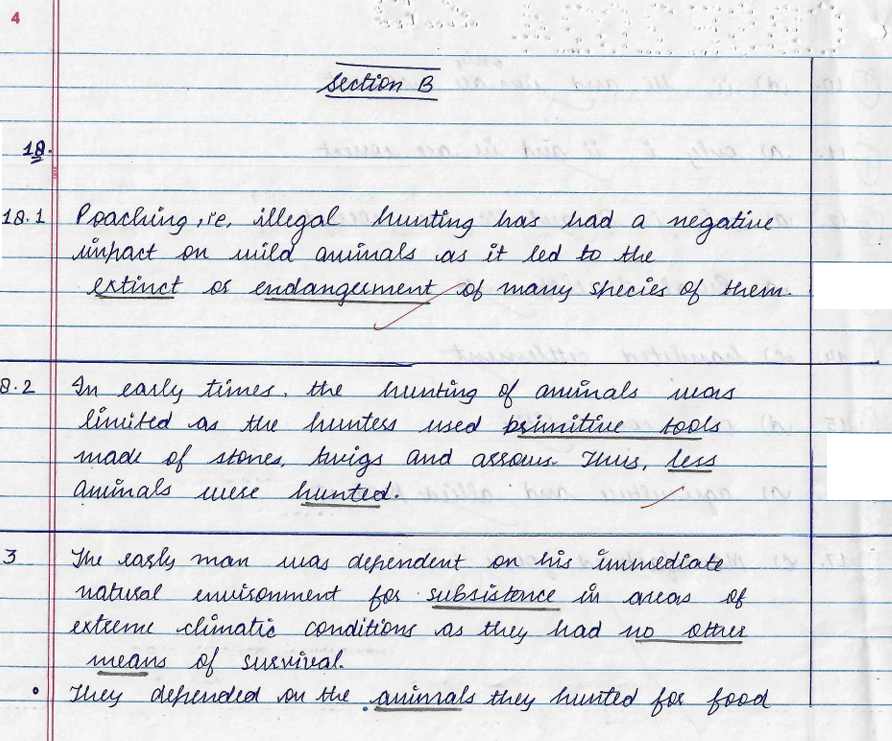 4
Section B
18.
18.1 Poaching, i.e, illegal hunting has had a negative
impact on wild animals as it led to the
extinct or endangerment of many species of them.
8.2 In early times, the hunting of animals was
limited as the hunters used primitive tools
made of stones, twigs and arrows. Thus, less
animals were hunted.
3 The early man was dependent on his immediate
natural environment for subsistence in areas of
extreme climatic conditions as they had no other
means of survival.
• They depended on the animals they hunted for food